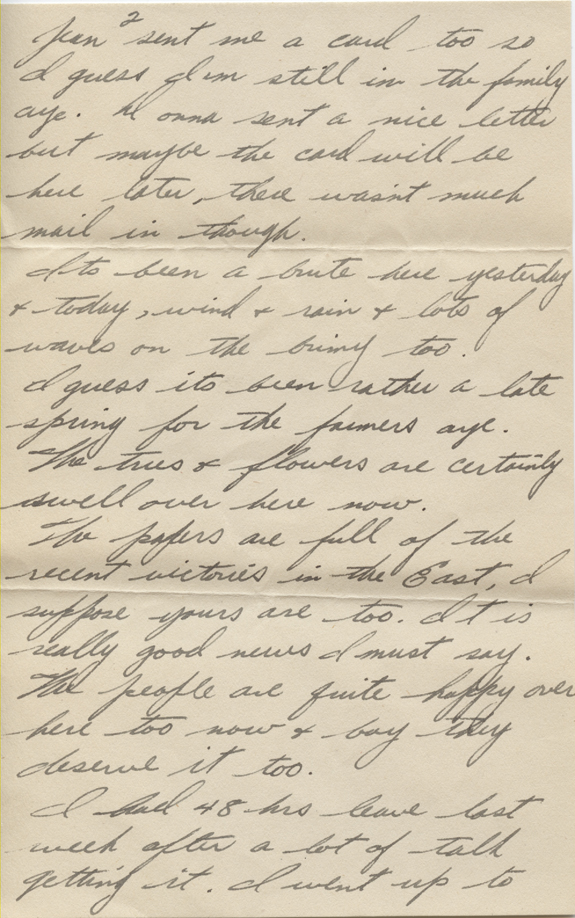 Jean² sent me a card too so
I guess I'm still in the family
aye. Wonna sent a nice letter
but maybe the card will be
here later, there wasn't much
mail in though.
It's been a brute here yesterday
& today, wind & rain & lots of
waves on the briny too.
I guess its been rather a late
spring for the farmers aye.
The trees & flowers are certainly
swell over here now.
The papers are full of the
recent victories in the East, I
suppose yours are too. It is
really good news I must say.
The people are quite happy over
here too now & boy they
deserve it too.
I had 48 hrs leave last
week after a lot of talk
getting it. I went up to